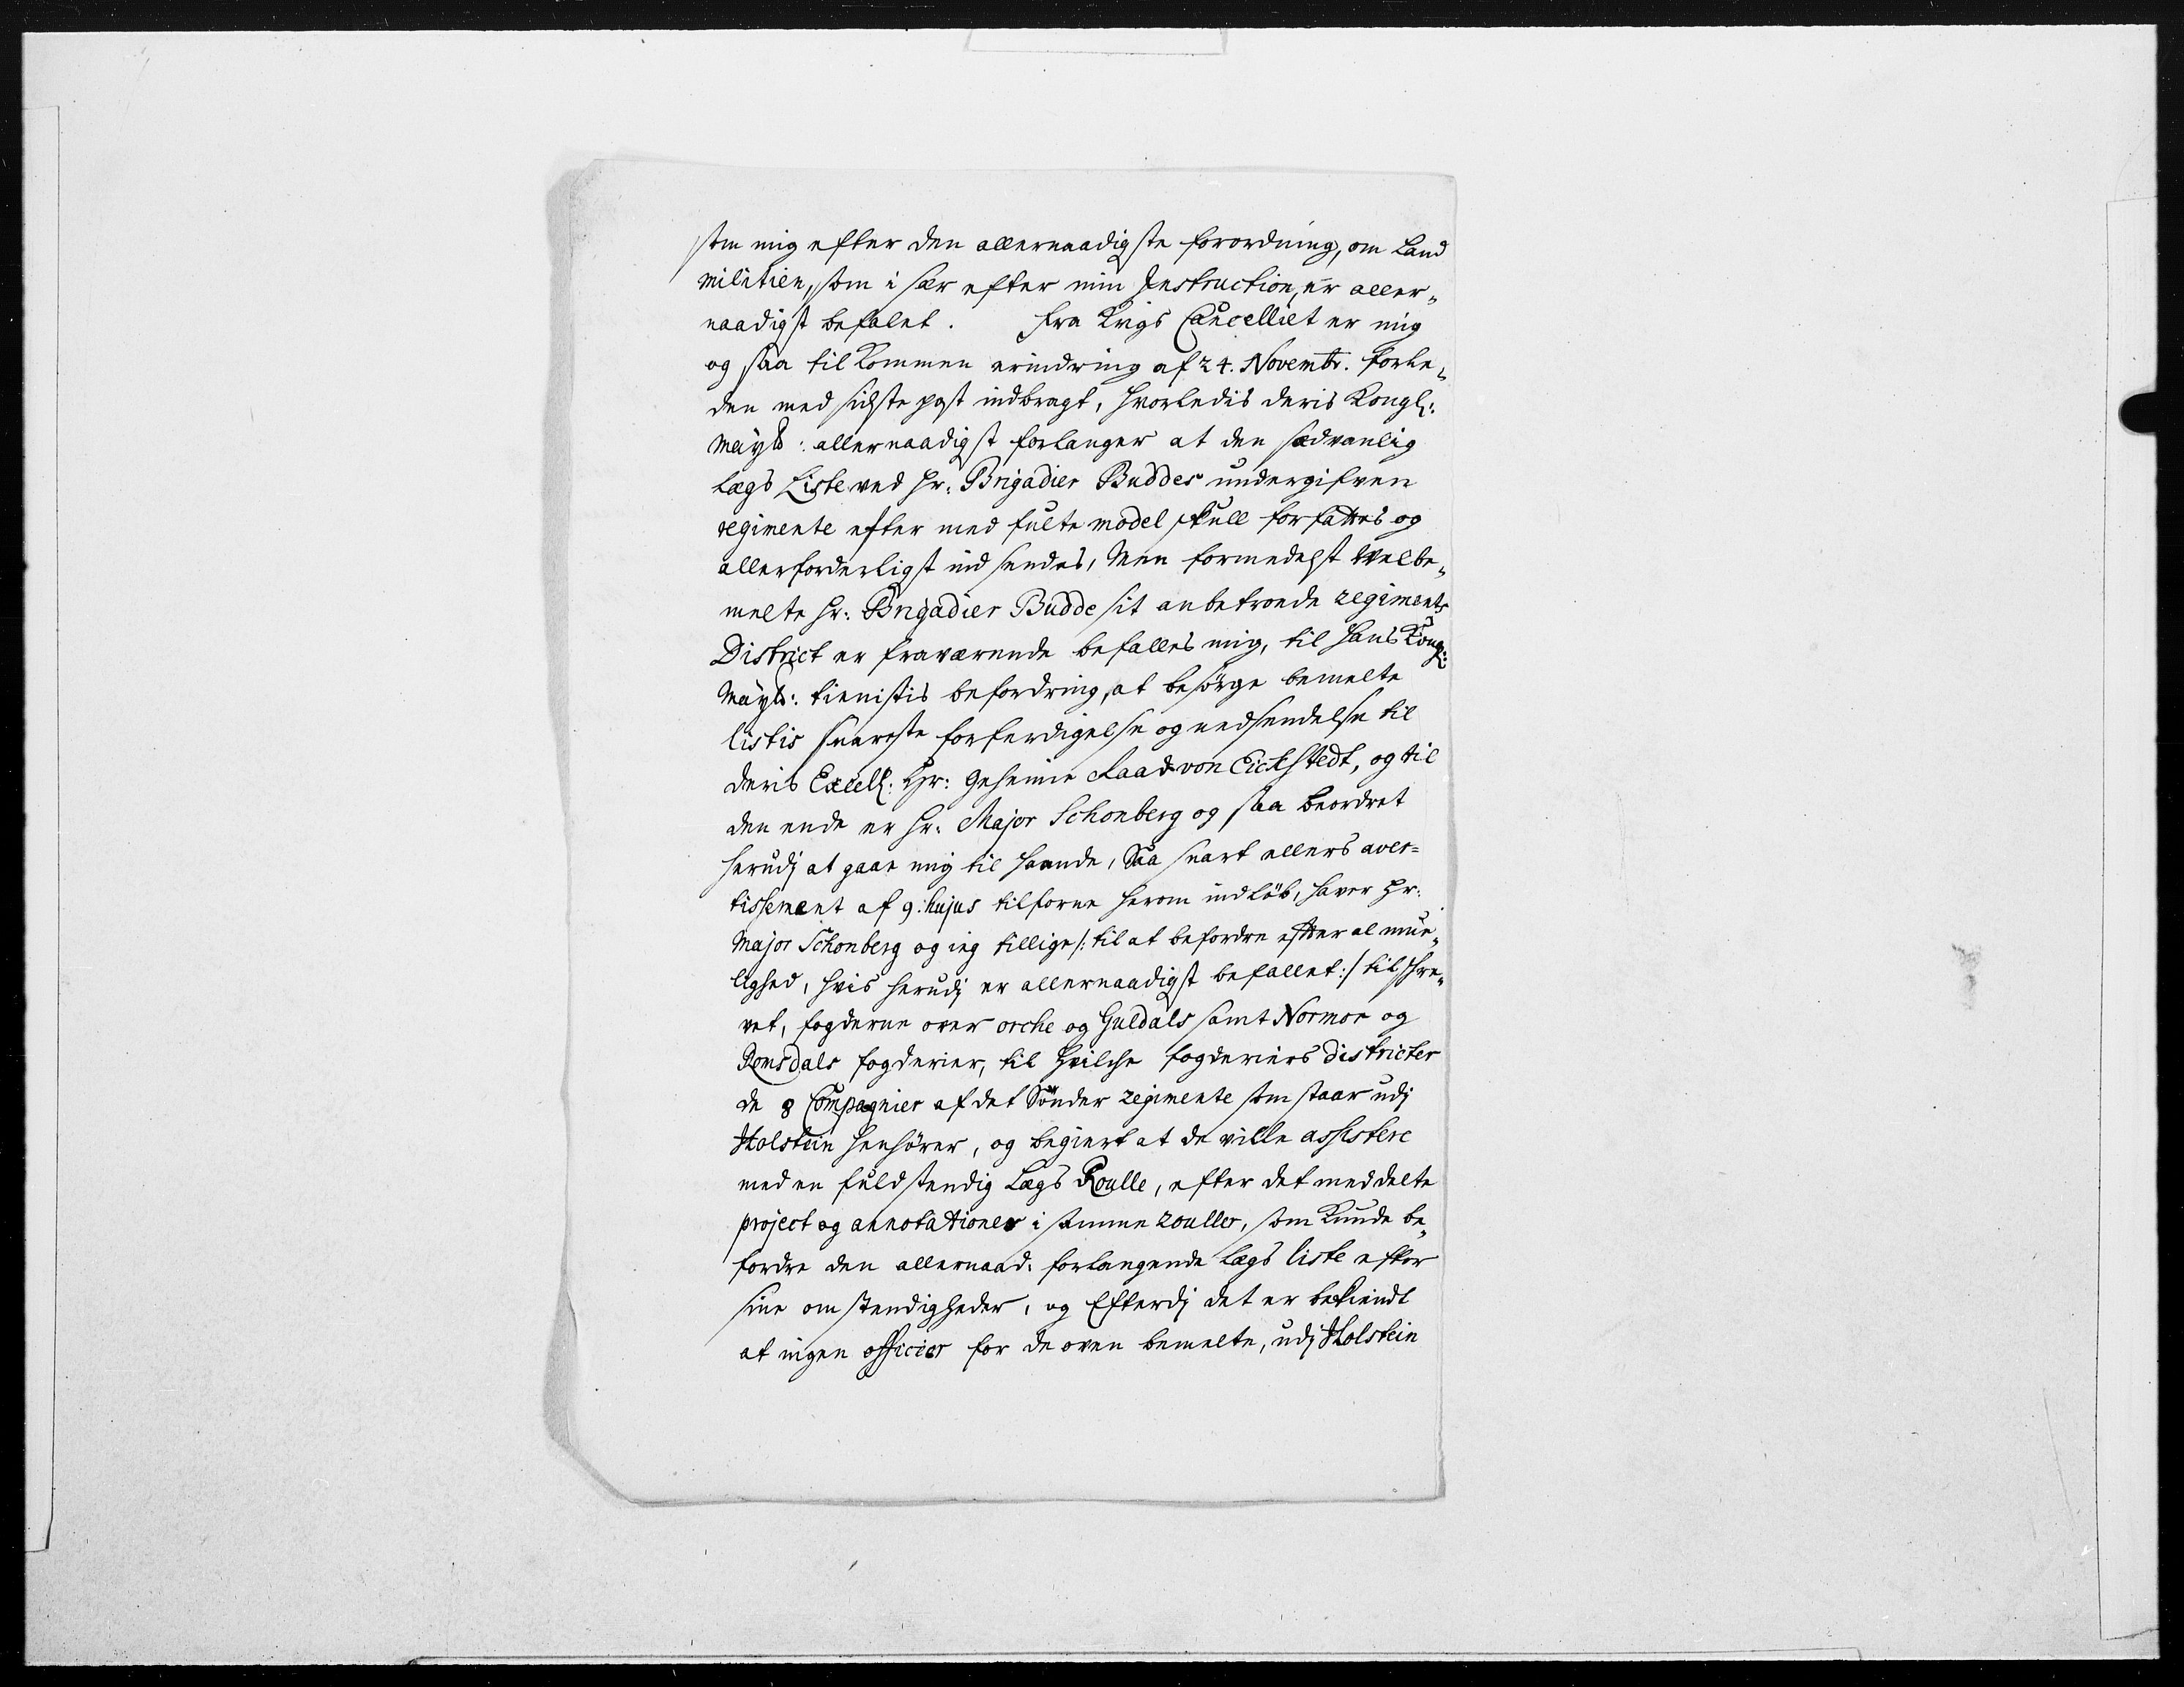 som mig efter den allernaadigste forordning, om Land
militien, som i sær efter min Instruction, er aller-
naadigst befalet. fra Krigs Cancelliet er mig
og saa til kommen erindring af 24. Novembr. forle-
den med sidste post indbragt, hvorledis deris Kongl:
Mayts: allernaadigst forlanger at den sædvanlig
Lægs Liste ved Hr: Brigadier Buddes undergifven
regimente efter med fulte model skull forfattes og
allerforderligst ind sendes, Men formedelst Velbe-
melte Hr: Brigadier Budde sit anbetroede regiments
District er fraværende befalles mig, til Hans Kongl:
Mayts: tienistis befordring, at besörge bemelte
listis snareste forferdigelse og nedsendelse til
deris Excell: Hr: Geheime Raad von Eickstedt, og til
den ende er Hr: Major Schonberg og saa beordret
herudj at gaae mig til haande, Saa snart allers aver-
tissement af 9. hujus tilforne herom indlöb, haver Hr:
Major Schonberg og ieg tillige /: til at befordre efter al mue-
lighed, hvis herudj er allernaadigst befallet :/ til skre-
vet, fogderne over orche og Guldals samt Normör og
Romsdals fogderier, til hvilche fogderiers districter
de 8 Compagnier af det Sönder regimente som staar udj
Holstein henhörer, og begiert at de ville assistere
med en fuldstendig Lægs Roulle, efter det meddelte
project og annotationer i samme roulles, som kunde be-
fordre den allernaad: forlangende Lægs liste efter
sine omstendigheder, og Efterdj det er bekiendt
at ingen officier for de oven bemelte, udj Holstein